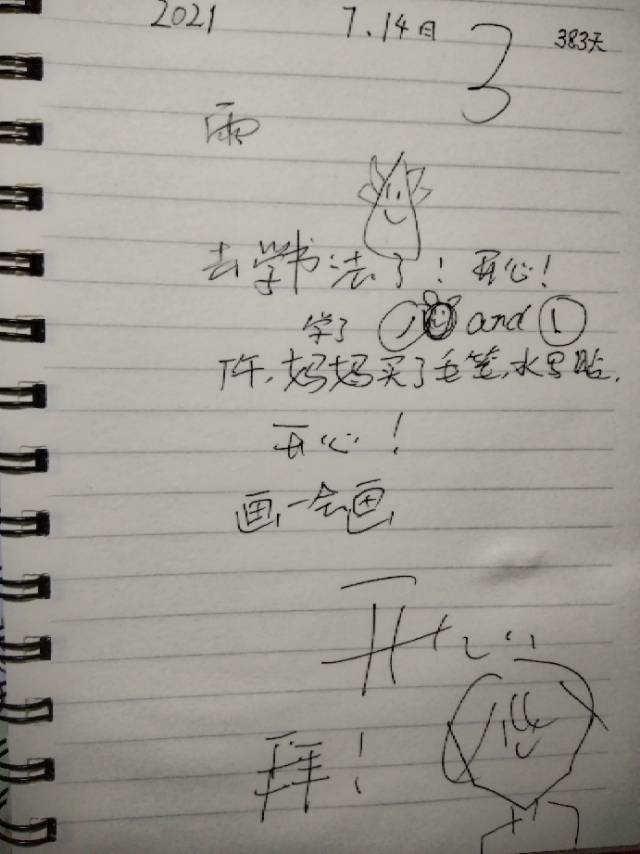 2021 7.14日 3 383天
雨
去学书法了！开心！
学了 and 1
下午，妈妈买了毛笔，水
开心！
画一会画
开心
拜！